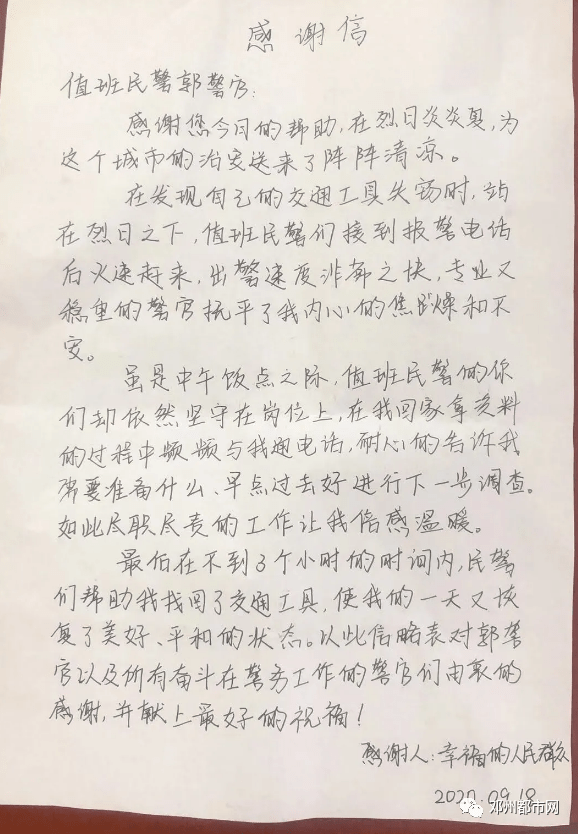 感谢信
值班民警郭警官：
感谢您今日的帮助，在烈日炎炎夏，为
这个城市的治安送来了阵阵清凉。
在发现自己的交通工具失窃时，站
在烈日之下，值班民警们接到报警电话
后火速赶来，出警速度非常之快，专业又
稳重的警官抚平了我内心的焦躁和不
安。
虽是中午饭点之际，值班民警的你
们却依然坚守在岗位上，在我回家拿资料
的过程中频频与我通电话，耐心的告诉我
需要准备什么、早点过去好进行下一步调查。
如此尽职尽责的工作让我倍感温暖。
最后在不到3个小时的时间内，民警
们帮助我找回了交通工具，使我的一天又恢
复了美好、平和的状态。以此信略表对郭警
官以及所有奋斗在警务工作的警官们由衷的
感谢，并献上最好的祝福！
感谢人：幸福的人民群众
2020.09.18
邓州都市网